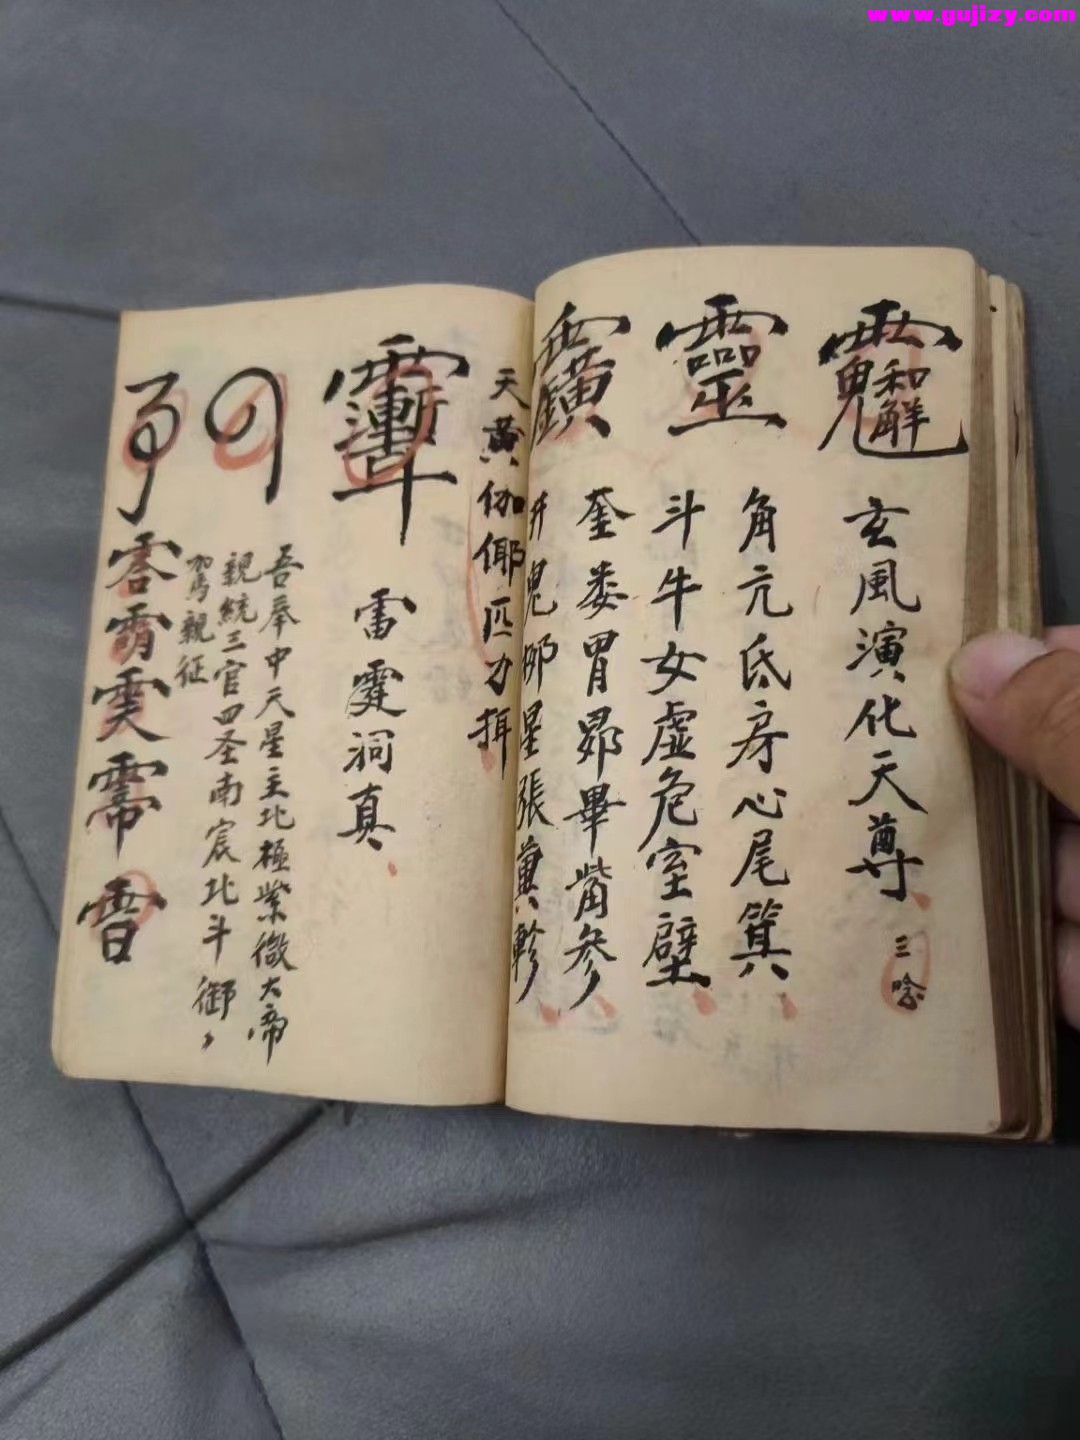 www.gujizy.com
玄風演化天尊
三唸
角亢氐房心尾箕
斗牛女虛危室壁
奎娄胃昴畢觜參
井鬼柳星張翼軫
天黃伽倻匹力揖
雷霆洞真
吾奉中天星主北極紫微大帝
親統三官四圣南宸北斗御
駕親征